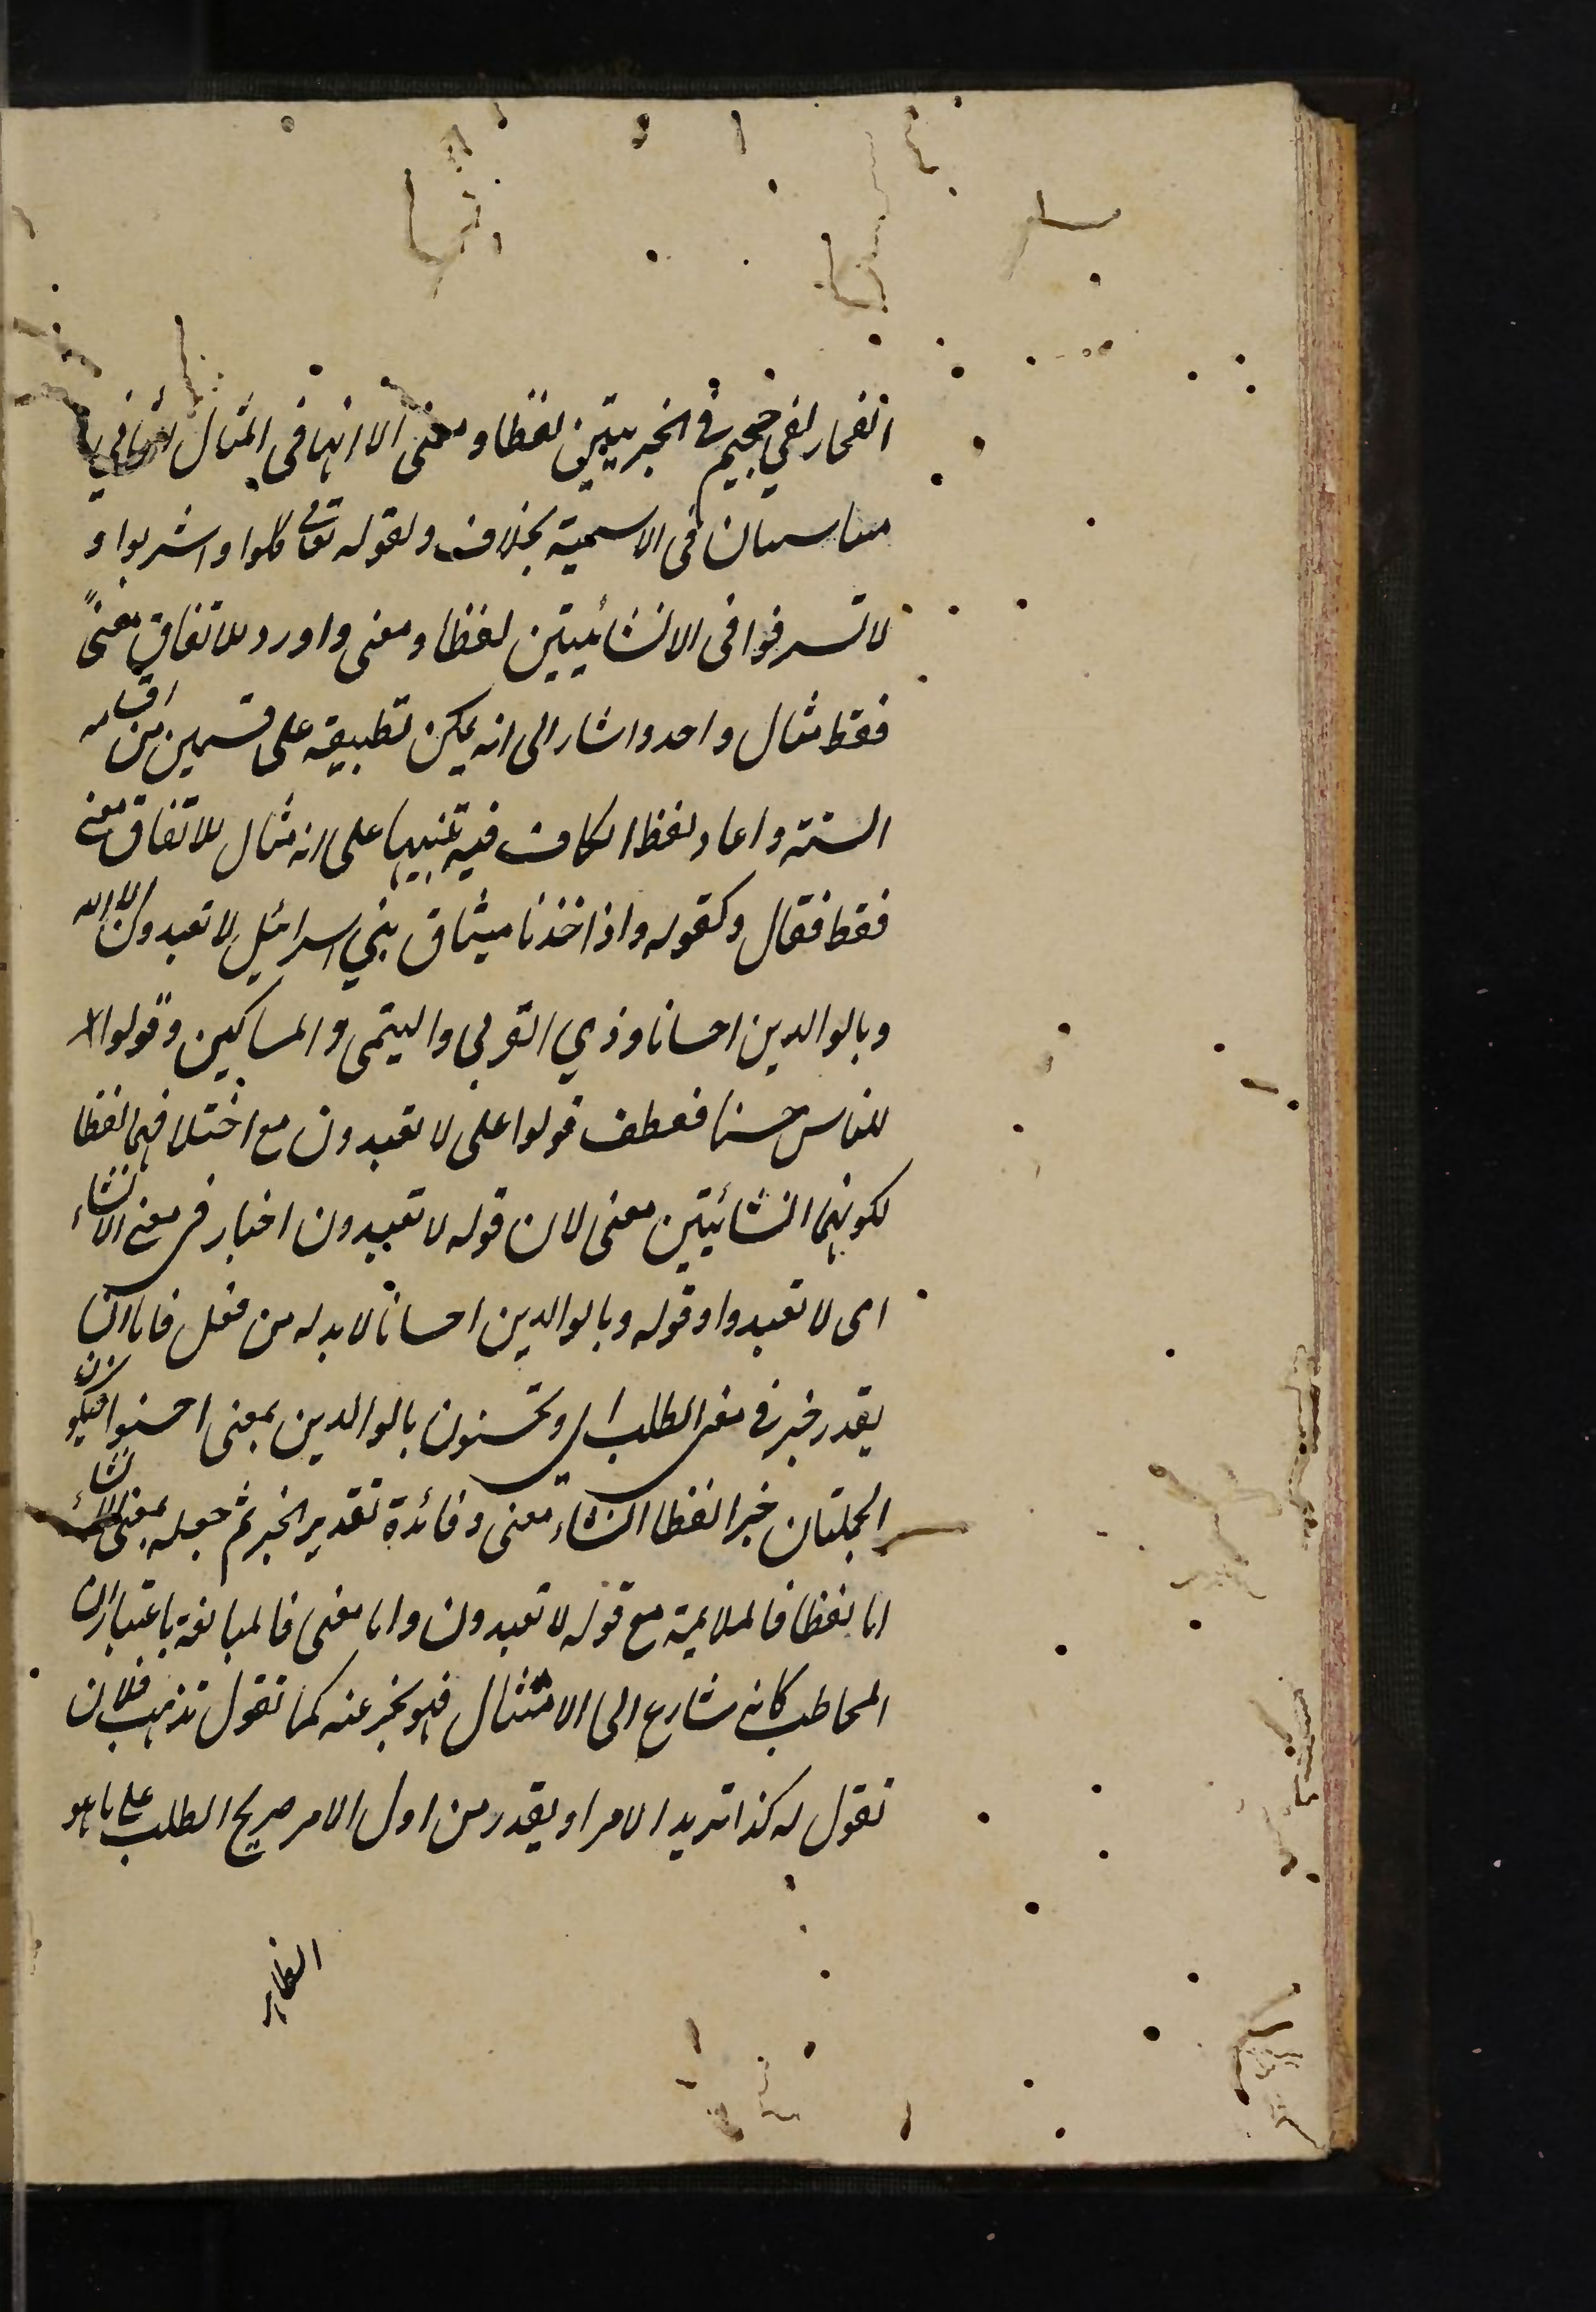 الفجار لفي جحيم فى الخبريتين لفظا ومعنى الا انهما فى المثال الثاني
متناسبتان فى الاسمية بخلاف ولقوله تعالى كلوا واشربوا و
لا تسرفوا فى الانشائيتين لفظا ومعنى واورد للاتفاق معنىً
فقط مثال واحد واشار الى انه يمكن تطبيقه على قسمين من اقسامه
الستة واعاد لفظ الكاف فيه تنبيها على انه مثال للاتفاق معنى
فقط فقال وكقوله واذ اخذنا ميثاق بني اسرائيل لا تعبدون الا الله
وبالوالدين احسانا وذي القربى واليتمى والمساكين وقولوا
للناس حسنا فعطف قولوا على لا تعبدون مع اختلافهما لفظا
لكونهما انشائيتين معنى لان قوله لا تعبدون اخبار فى معنى الانشاء
اى لا تعبدوا وقوله وبالوالدين احسانا لا بد له من فعل فاما ان
يقدر خبر فى معنى الطلب اى وتحسنون بالوالدين بمعنى احسنوا فيكون
الجملتان خبرا لفظا انشاء معنى وفائدة تقدير الخبر ثم جعله بمعنى الانشاء
اما لفظا فالملايمة مع قوله لا تعبدون واما معنى فالمبالغة باعتبار ان
المخاطب كانه سارع الى الامتثال فهو يخبر عنه كما تقول تذهب الى فلان
تقول له كذا تريد الامر او يقدر من اول الامر صريح الطلب على ما هو
الظاهر